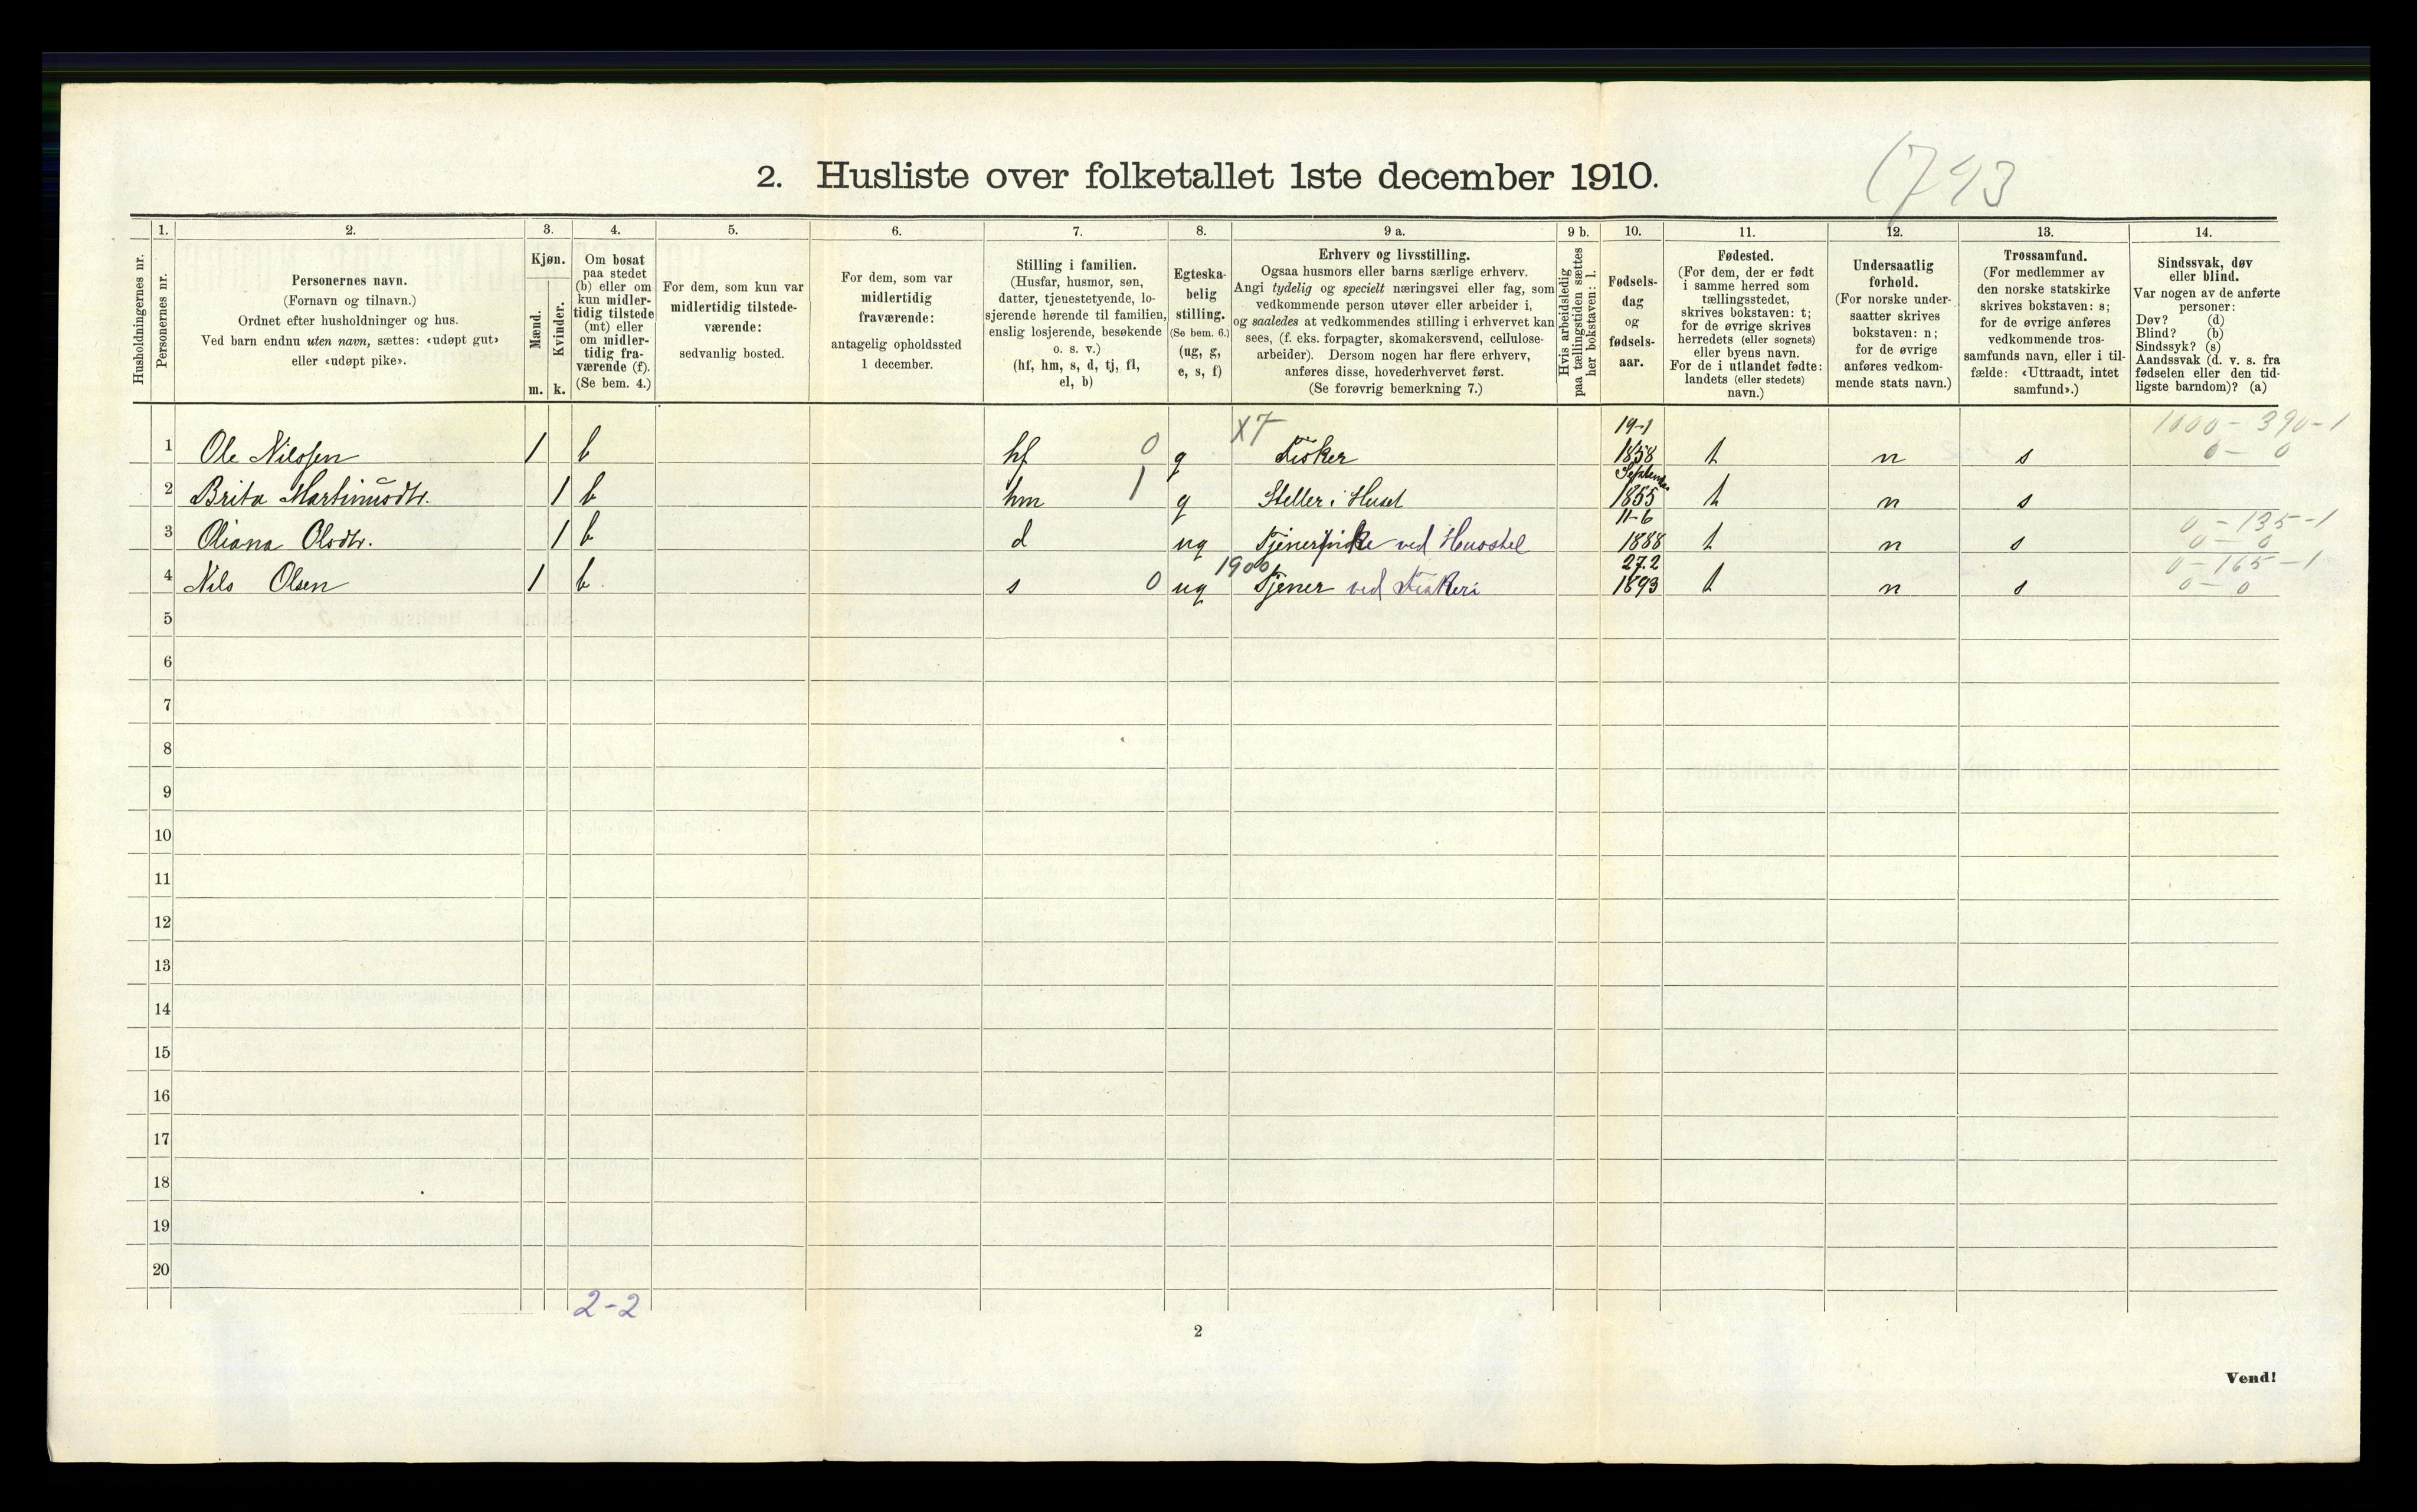 2. Husliste over folketallet 1ste december 1910.
1. 2. 3. 4. 5. 6. 7. 8. 9 a. 9 b. 10. 11. 12. 13. 14.
Husholdningernes nr.
Personernes nr.
Personernes navn.
(Fornavn og tilnavn.)
Ordnet efter husholdninger og hus.
Ved barn endnu uten navn, sættes: «udøpt gut»
eller «udøpt pike».
Kjøn.
Mænd.
Kvinder.
m. k.
Om bosat
paa stedet
(b) eller om
kun midler-
tidig tilstede
(mt) eller
om midler-
tidig fra-
værende (f).
(Se bem. 4.)
For dem, som kun var
midlertidig tilstede-
værende:
sedvanlig bosted.
For dem, som var
midlertidig
fraværende:
antagelig opholdssted
1 december.
Stilling i familien.
(Husfar, husmor, søn,
datter, tjenestetyende, lo-
sjerende hørende til familien,
enslig losjerende, besøkende
o. s. v.)
(hf, hm, s, d, tj, fl,
el, b)
Egteska-
belig
stilling.
(Se bem. 6.)
(ug, g,
e, s, f)
Erhverv og livsstilling.
Ogsaa husmors eller barns særlige erhverv.
Angi tydelig og specielt næringsvei eller fag, som
vedkommende person utøver eller arbeider i,
og saaledes at vedkommendes stilling i erhvervet kan
sees, (f. eks. forpagter, skomakersvend, cellulose-
arbeider). Dersom nogen har flere erhverv,
anføres disse, hovederhvervet først.
(Se forøvrig bemerkning 7.)
Hvis arbeidsledig
paa tællingstiden sættes
her bokstaven: l.
Fødsels-
dag
og
fødsels-
aar.
Fødested.
(For dem, der er født
i samme herred som
tællingsstedet,
skrives bokstaven: t;
for de øvrige skrives
herredets (eller sognets)
eller byens navn.
For de i utlandet fødte:
landets (eller stedets)
navn.)
Undersaatlig
forhold.
(For norske under-
saatter skrives
bokstaven: n;
for de øvrige
anføres vedkom-
mende stats navn.)
Trossamfund.
(For medlemmer av
den norske statskirke
skrives bokstaven: s;
for de øvrige anføres
vedkommende tros-
samfunds navn, eller i til-
fælde: «Uttraadt, intet
samfund».)
Sindssvak, døv
eller blind.
Var nogen av de anførte
personer:
Døv? (d)
Blind? (b)
Sindssyk? (s)
Aandssvak (d. v. s. fra
fødselen eller den tid-
ligste barndom)? (a)
X7 19-1 1000 - 390-1
1 Ole Nilssen 1 b hf 0 g Fisker 1858 t n s 0 - 0
September
2 Brita Martinusdtr. 1 b hm 1 g Steller i Huset 1855 t n s
11-6 0 - 135-1
3 Oliana Olsdtr. 1 b d ug Tjenerpike ved Husstel 1888 t n s 0 - 0
1900 27.2 0 - 165 - 1
4 Nils Olsen 1 b s 0 ug Tjener ved Fiskeri 1893 t n s 0 - 0
5
6
7
8
9
10
11
12
13
14
15
16
17
18
19
20
2-2
2
Vend!